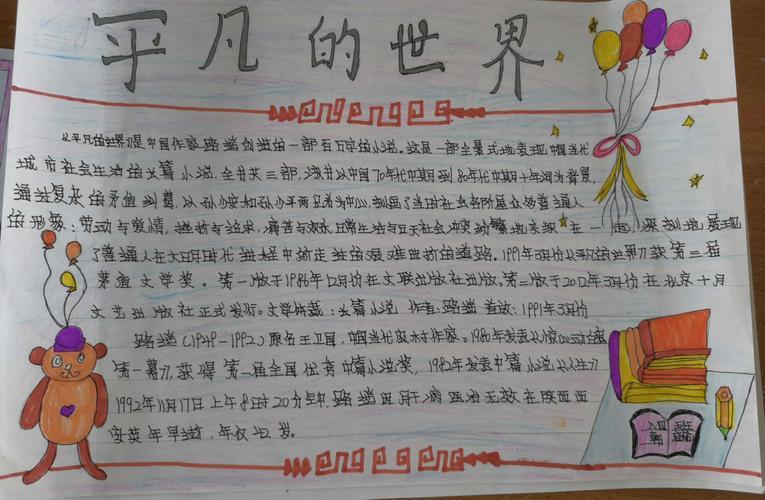 平凡的世界
《平凡的世界》是中国作家路遥创作的一部百万字的小说。这是一部全景式地表现中国当代
城市社会生活的长篇小说,全书共三部,该书以中国70年代中期到80年代中期十年间为背景,
通过复杂的矛盾纠葛,以孙少安和孙少平两兄弟为中心,刻画了当时社会各阶层众多普通人
的形象:劳动与爱情,挫折与追求,痛苦与欢乐,日常生活与巨大社会冲突纷繁地交织在一起,深刻地展现
了普通人在大时代进程中所走过的艰难曲折的道路。1991年3月份《平凡的世界》获第三届
茅盾文学奖。第一版于1986年12月份在文联出版社出版,第二版于2012年3月份在北京十月
文艺出版社正式发行。文学体裁:长篇小说 作者:路遥 首奖:1991年3月份
路遥(1949-1992)原名王卫国,中国当代乡村作家。1980年发表《惊心动魄
第一幕》,获得第一届全国优秀中篇小说奖,1982年发表中篇小说《人生》
1992年11月17日上午8时20分,路遥因肝病医治无效在陕西西
安英年早逝,年仅42岁。